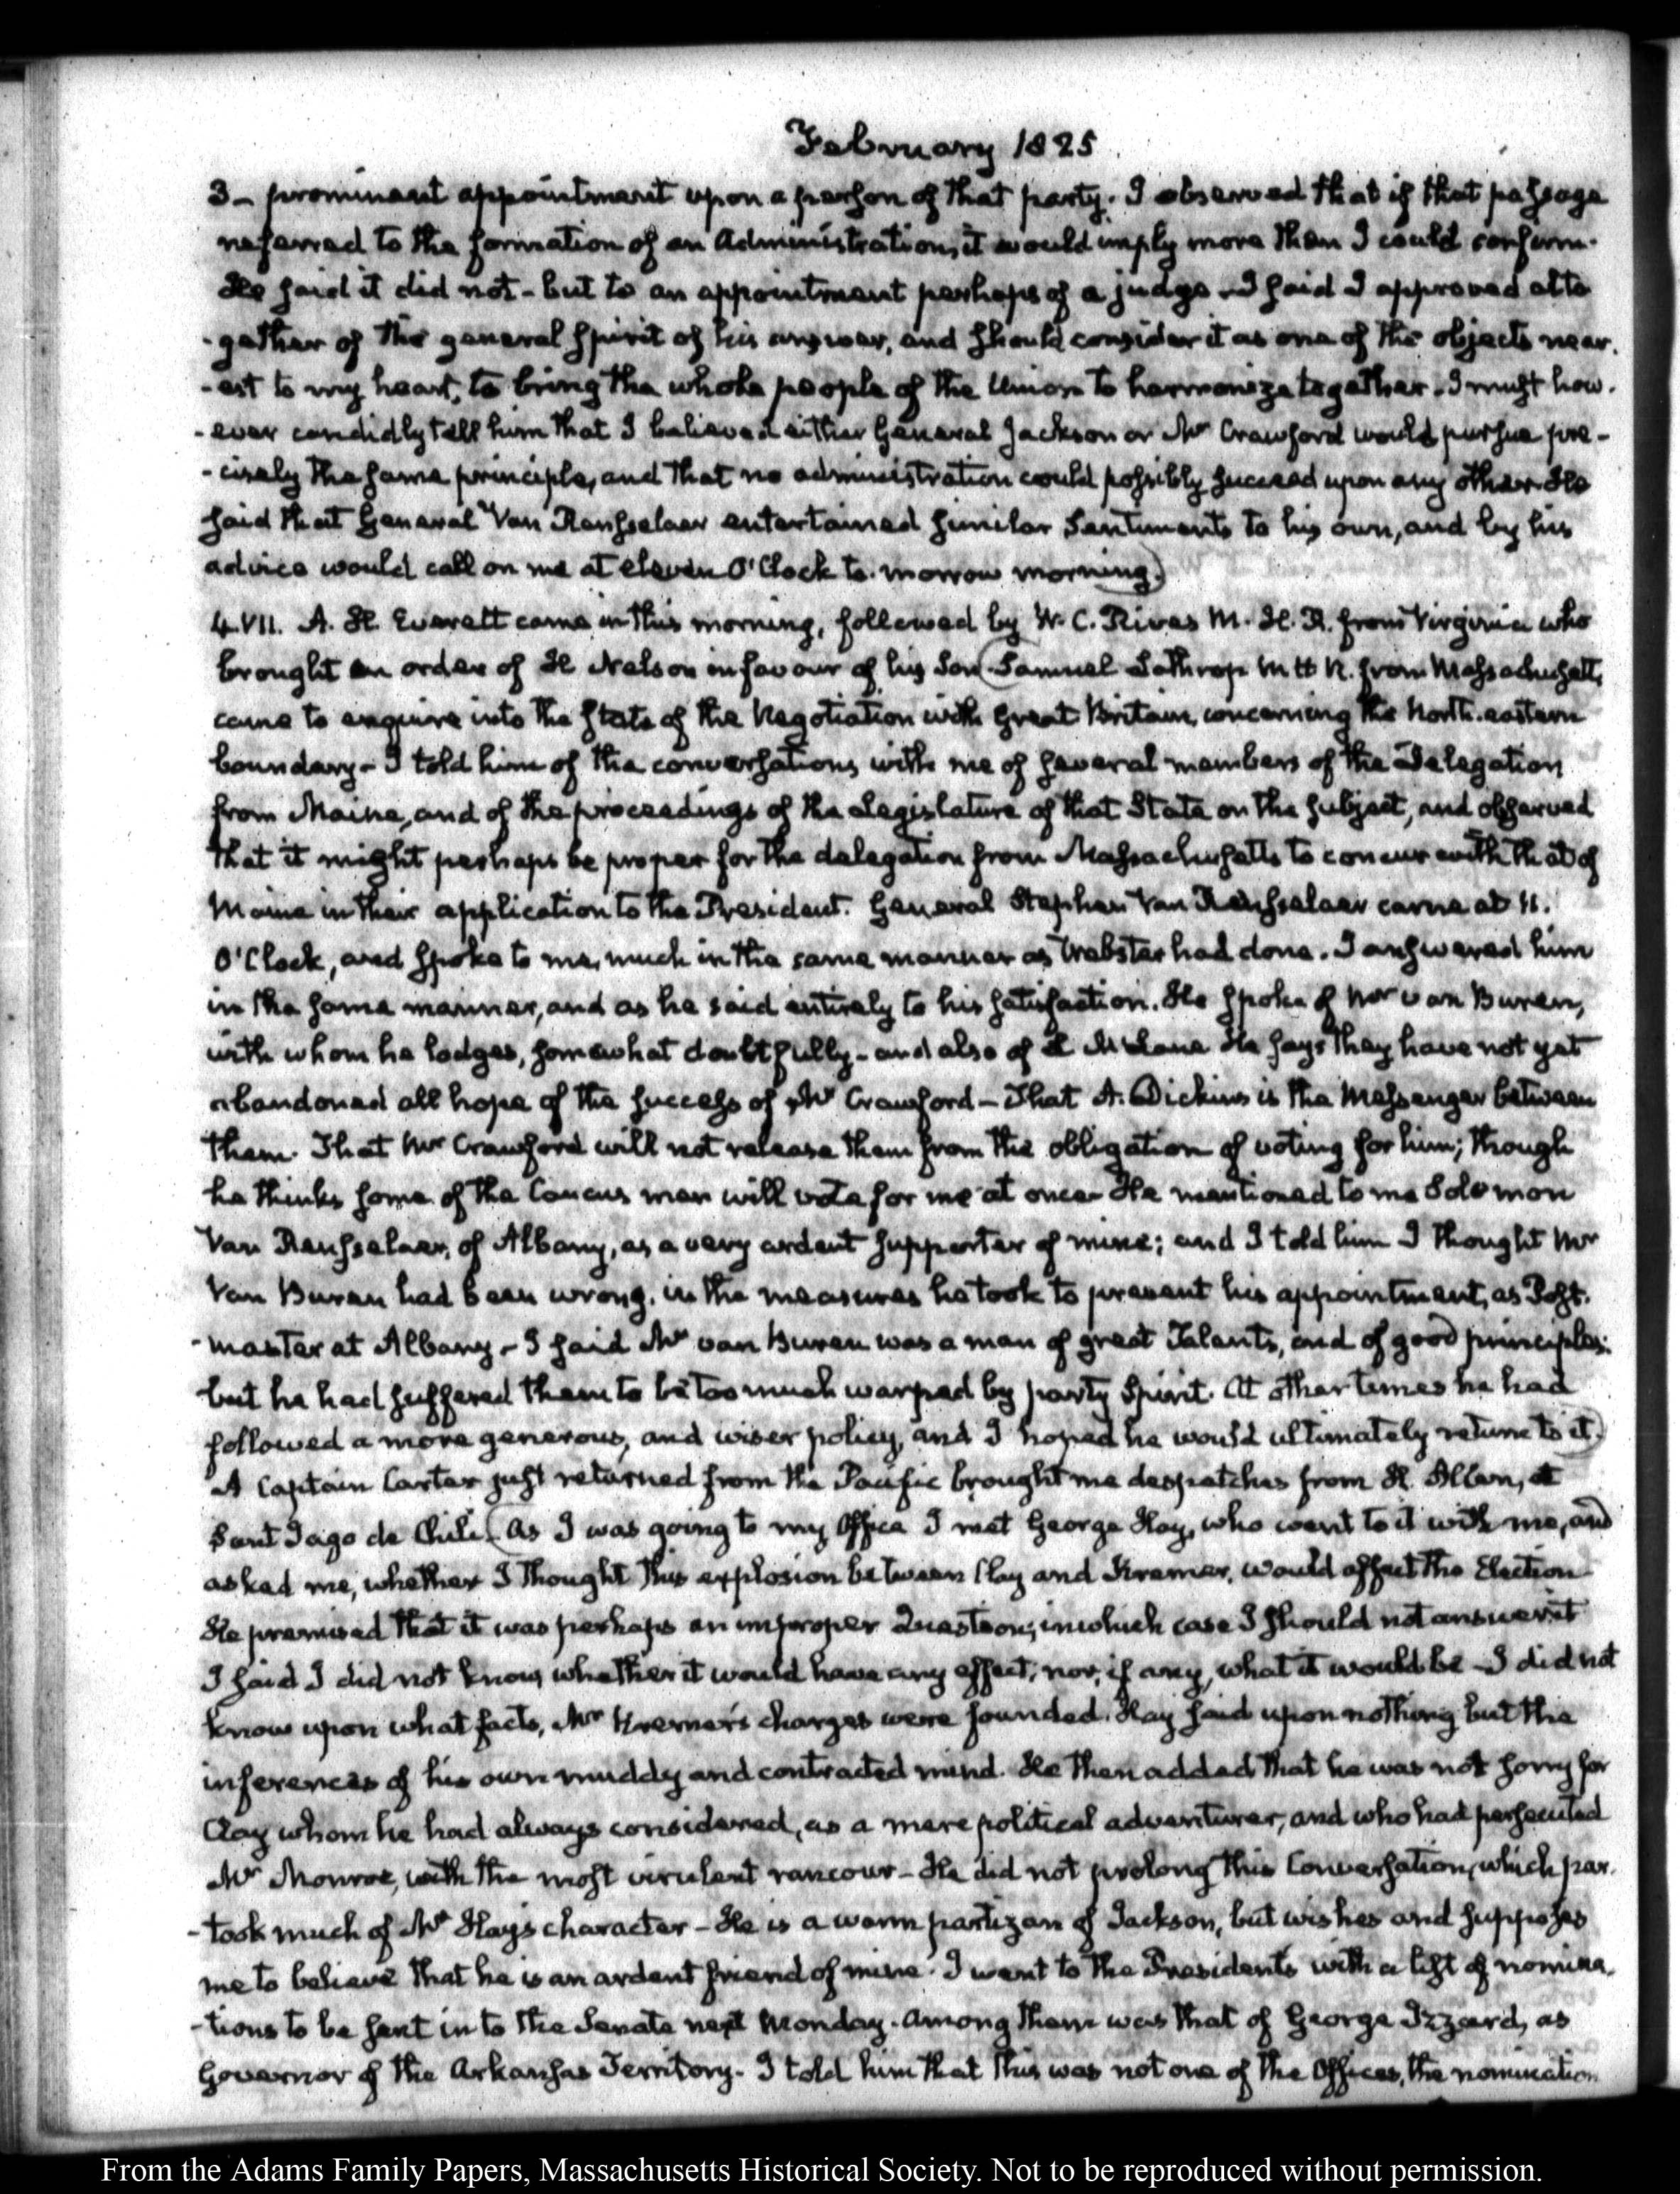 February 1825
3 - prominent appointment upon a person of that party. I observed that if that passage
referred to the formation of an Administration, it would imply more than I could confirm.
He said it did not - but to an appointment perhaps of a judge - I said I approved alto
-gether of the general spirit of his answer, and should consider it as one of the objects near.
-est to my heart, to bring the whole people of the Union to harmonize together. I must how.
-ever candidly tell him that I believed either General Jackson or Mr Crawford would pursue pre-
-cisely the same principle, and that no administration could possibly succeed upon any other. He
said that General Van Rensselaer entertained similar sentiments to his own, and by his
advice would call on me at eleven O'Clock to-morrow morning.)
4. VII. A. H. Everett came in this morning, followed by W. C. Rives M. H. R. from Virginia who
brought an order of H Nelson in favour of his Son (Samuel Lathrop M H R. from Massachusetts,
came to enquire into the state of the Negotiation with Great Britain, concerning the North-eastern
boundary - I told him of the conversations with me of several members of the Delegation
from Maine, and of the proceedings of the Legislature of that State on the subject, and observed
that it might perhaps be proper for the delegation from Massachusetts to concur with that of
Maine in their application to the President. General Stephen Van Rensselaer came at 11.
O'Clock, and spoke to me, much in the same manner as Webster had done. I answered him
in the same manner, and as he said entirely to his satisfaction. He spoke of Mr van Buren,
with whom he lodges, somewhat doubtfully - and also of L McLane He says they have not yet
abandoned all hope of the success of Mr Crawford - That A. Dickins is the Messenger between
them. That Mr Crawford will not release them from the obligation of voting for him; though
he thinks some of the Caucus men will vote for me at once - He mentioned to me Solomon
Van Rensselaer, of Albany, as a very ardent supporter of mine; and I told him I thought Mr
Van Buren had been wrong, in the measures he took to prevent his appointment, as Post.
-master at Albany - I said Mr van Buren was a man of great Talents, and of good principles:
but he had suffered them to be too much warped by party Spirit. At other times he had
followed a more generous, and wiser policy, and I hoped he would ultimately return to it.)
A Captain Carter just returned from the Pacific brought me despatches from H. Allen, at
Sant Iago de Chile. (As I was going to my Office I met George Hay, who went to it with me, and
asked me, whether I thought this explosion between Clay and Kremer, would affect the Election
He premised that it was perhaps an improper Question; in which case I should not answer it
I said I did not know whether it would have any effect; nor, if any, what it would be - I did not
know upon what facts, Mr Kremer's charges were founded. Hay said upon nothing but the
inferences of his own muddy and contracted mind. He then added that he was not sorry for
Clay whom he had always considered, as a mere political adventurer, and who had persecuted
Mr Monroe, with the most virulent rancour - He did not prolong this Conversation, which par.
-took much of Mr Hay's character - He is a warm partizan of Jackson, but wishes and supposes
me to believe that he is an ardent friend of mine. I went to the Presidents with a list of nomina.
-tions to be sent in to the Senate next Monday. Among them was that of George Izzard, as
Governor of the Arkansas Territory. I told him that this was not one of the Offices, the nomination
From the Adams Family Papers, Massachusetts Historical Society. Not to be reproduced without permission.